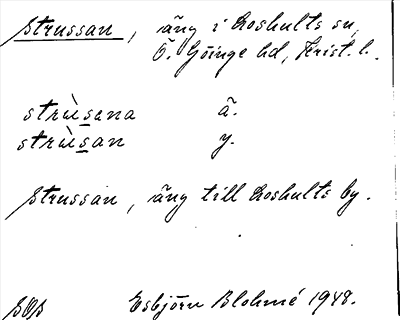 Strussan, äng i Loshults sn,
Ö. Göinge hd, Krist. l.
strùsena ä.
strùsan y.
Strussan, äng till Loshults by.
Esbjörn Blohmé 1948.